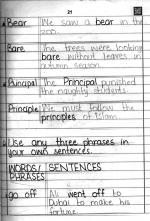 21
Bear We saw a bear in the
zoo.
Bare The trees were looking
bare without leaves in
autumn season.
Principal The Principal punished
the naughty students.
Principle We must follow the
principles of Islam.
Use any three phrases in
your own sentences.
WORDS/ SENTENCES
PHRASES
go off Ali went off to
Dubai to make his
fortune.